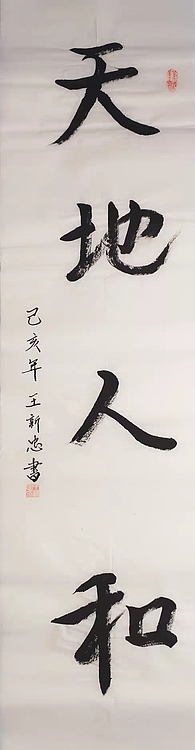 天地人和
己亥年 王新忠書